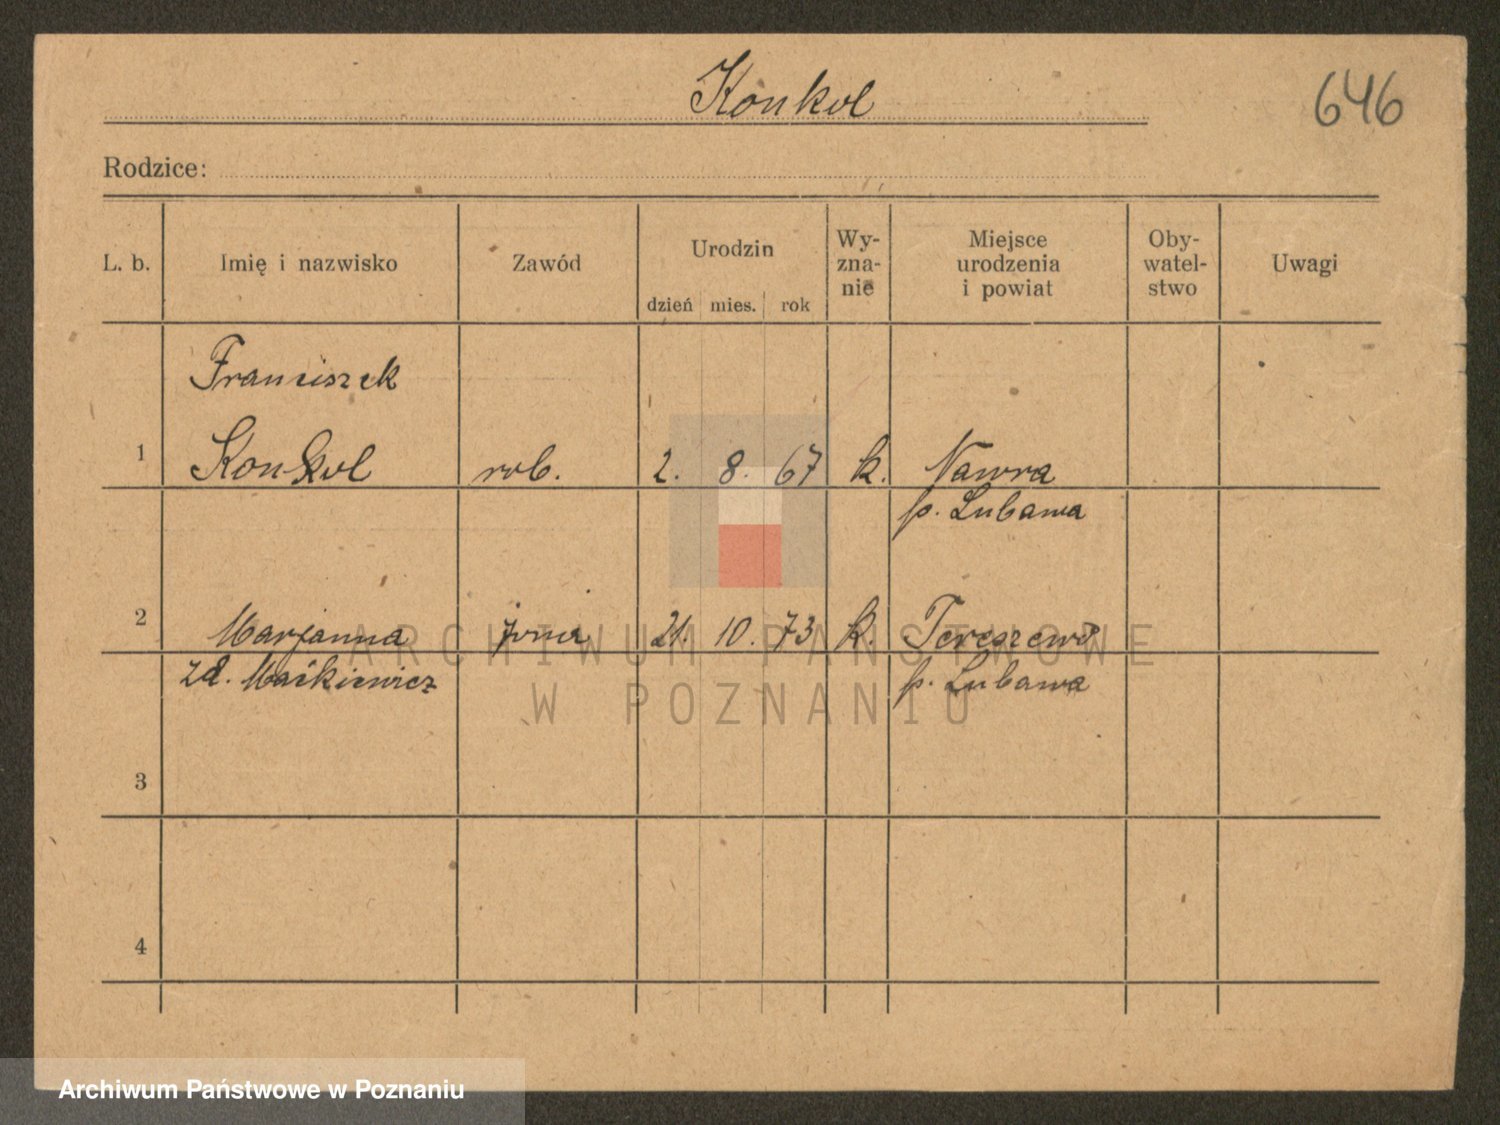 Konkol
646
Rodzice:
L. b. Imię i nazwisko Zawód Urodzin dzień mies. rok Wy-zna-nie Miejsce urodzenia i powiat Oby-watel-stwo Uwagi
Franciszek
1 Konkol rob. 2. 8. 67 k. Nawra
p. Lubawa
2 Marjanna żona 21. 10. 73 k. Tereszewo
zd. Maćkiewicz p. Lubawa
3
4
ARCHIWUM PAŃSTWOWE
W POZNANIU
Archiwum Państwowe w Poznaniu